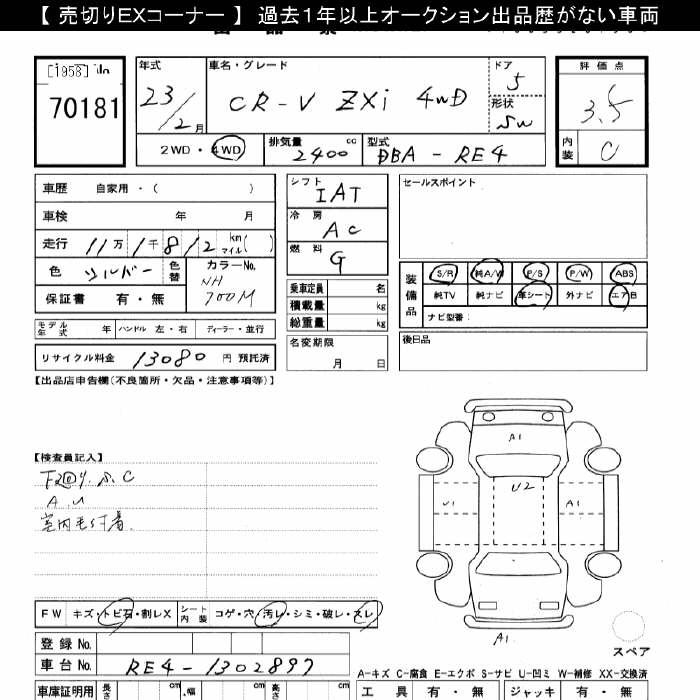 【 売切りEXコーナー 】 過去1年以上オークション出品歴がない車両
[1958]
70181
年式
23/2月
車名・グレード
CR-V ZXi 4WD
ドア
5
形状
SW
評価点
3.5
内装
C
2WD・4WD
排気量
2400cc
型式
DBA-RE4
車歴 自家用・( )
車検 年 月
走行 11万1千812 km マイル( )
色 シルバー 色替
カラーNo.
NH700M
保証書 有・無
シフト
IAT
冷房
AC
燃料
G
乗車定員 名
積載量 kg
総重量 kg
セールスポイント
装備品
S/R 純A/W P/S P/W ABS
純TV 純ナビ 革シート 外ナビ エアB
ナビ型番:
モデル年式 年 ハンドル 左・右 ディーラー・並行
リサイクル料金 13080 円 預託済
名変期限
月 日
後日品
【出品店申告欄(不良箇所・欠品・注意事項等)】
【検査員記入】
A.U
室内毛付着
A1
U2
U1
A1
A1
スペア
FW キズ・トビ石・割レX
シート内装 コゲ・穴・汚レ・シミ・破レ・スレ
登録No.
車台No. RE4-1302897
A-キズ C-腐食 E-エクボ S-サビ U-凹ミ W-補修 XX-交換済
車庫証明用 長さ cm 幅 cm 高さ cm
工具 有・無 ジャッキ 有・無